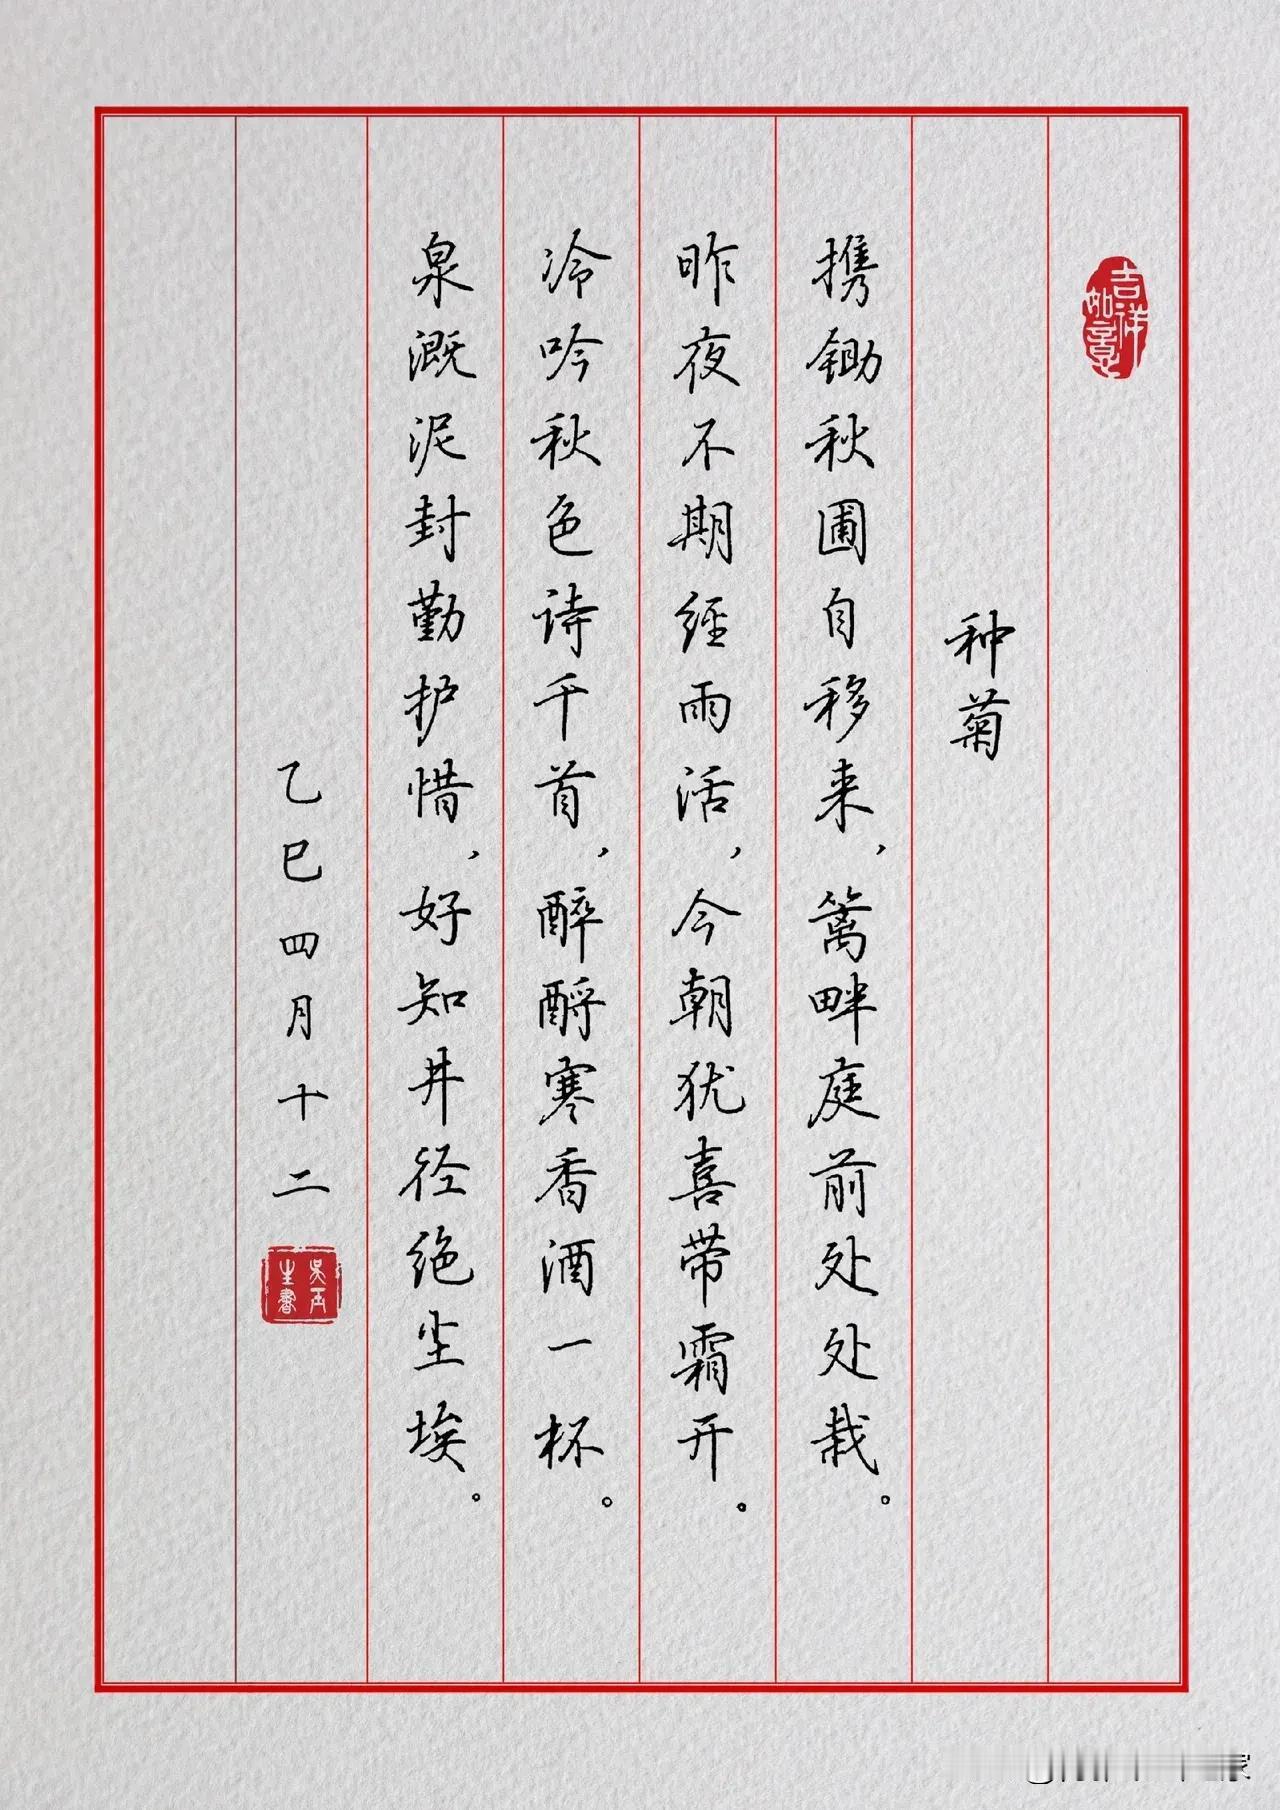 吉祥如意
种菊
携锄秋圃自移来，篱畔庭前处处栽。
昨夜不期经雨活，今朝犹喜带霜开。
冷吟秋色诗千首，醉酹寒香酒一杯。
泉溉泥封勤护惜，好知井径绝尘埃。
乙巳四月十二